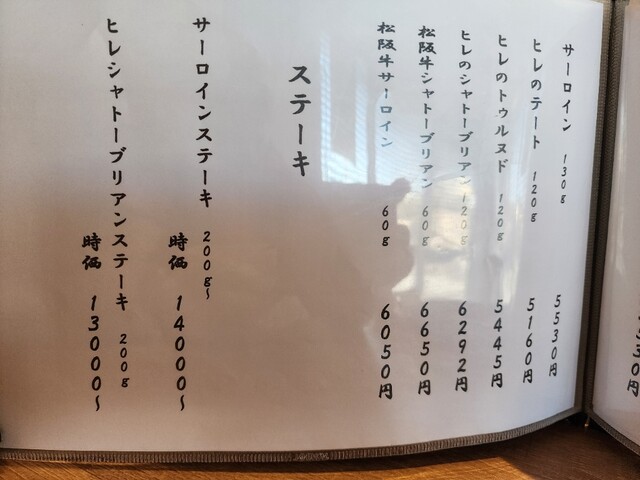 サーロイン 130g 5530円
ヒレのテート 120g 5160円
ヒレのトゥルヌド 120g 5445円
ヒレのシャトーブリアン 120g 6292円
松阪牛シャトーブリアン 60g 6650円
松阪牛サーロイン 60g 6050円
ステーキ
サーロインステーキ 200g~
時価 14000~
ヒレシャトーブリアンステーキ 200g
時価 13000~